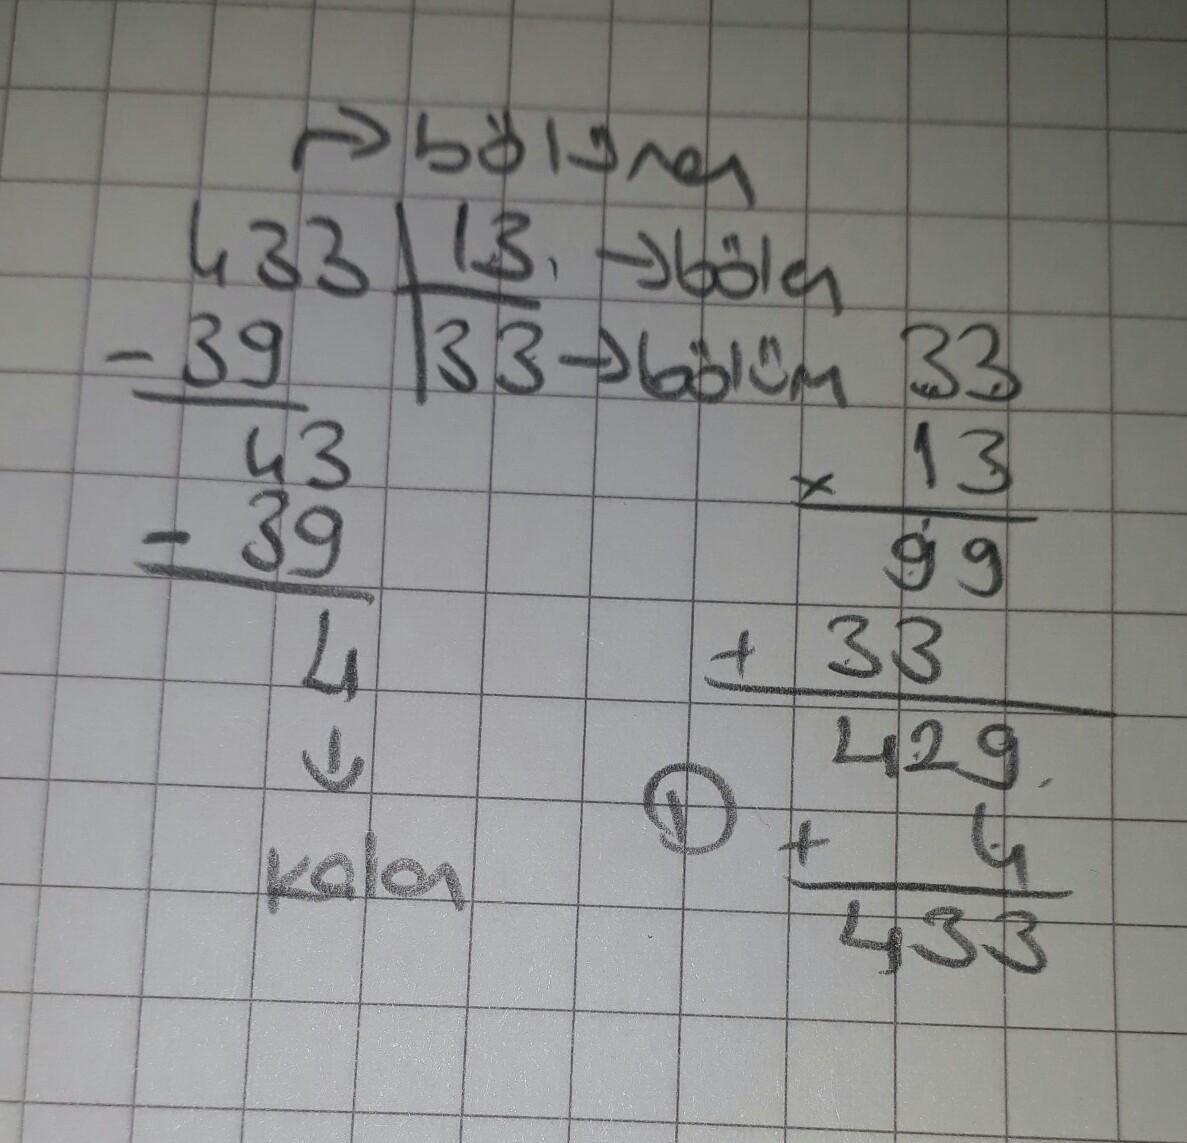 → bölünen
433 | 13 → bölen
- 39 | 33 → bölüm
43
- 39
4
↓
kalan
33
x 13
99
+ 33
429
① + 4
433